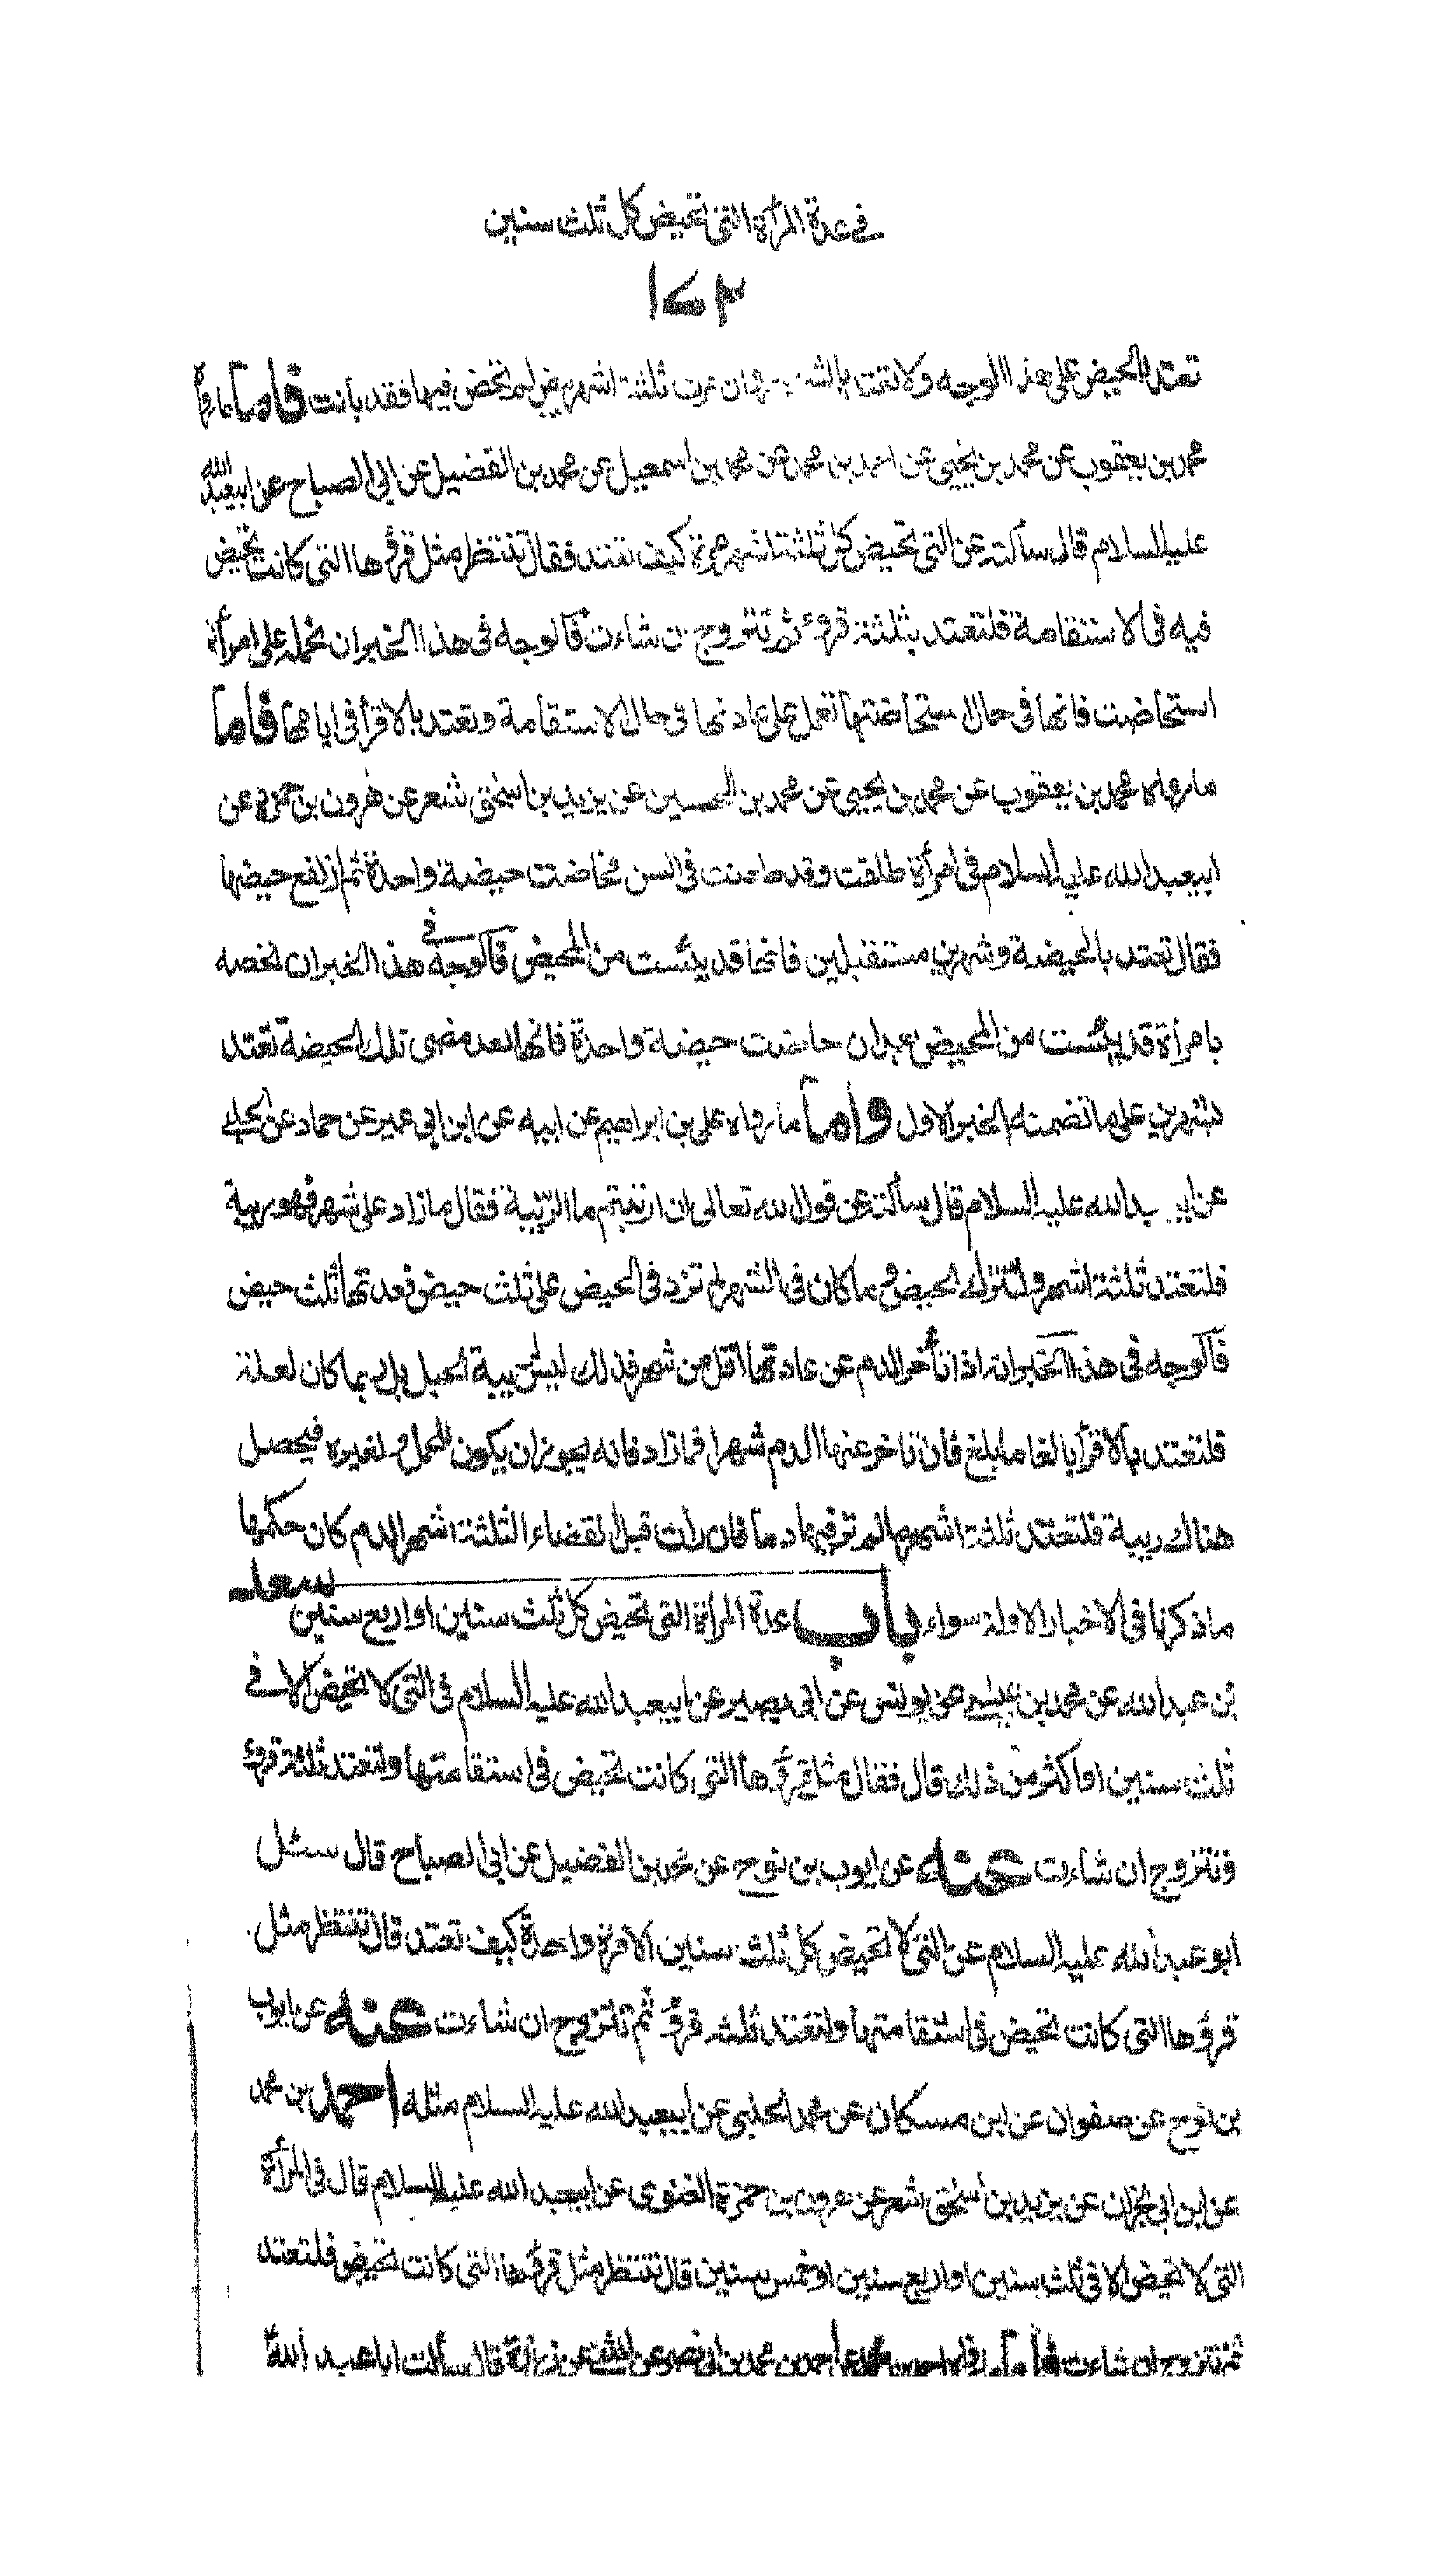 في عدة المرأة التي تحيض كل ثلث سنين
تعتد بالحيض على هذا الوجه ولا تعتد بالشهور وان مرت ثلثة اشهر بيض لم تحض فيها فقد بانت فاما ما رواه
محمد بن يعقوب عن محمد بن يحيى عن احمد بن محمد عن محمد بن اسمعيل عن محمد بن الفضيل عن ابي الصباح عن ابيعبد الله
عليه السلام قال سألته عن التي تحيض كل ثلثة اشهر مرة كيف تعتد فقال تنتظر مثل قرؤها التي كانت تحيض
فيه في الاستقامة فلتعتد بثلثة قروء ثم تتزوج ان شاءت فالوجه في هذا الخبر ان نحمله على امرأة
استحاضت فانها في حال استحاضتها تعمل على عادتها في حال الاستقامة وتعتد بالاقرأ في ايامها فاما
ما رواه محمد بن يعقوب عن محمد بن يحيى عن محمد بن الحسين عن يزيد بن اسحق شعر عن هرون بن حمزة عن
ابيعبد الله عليه السلام في امرأة طلقت وقد طعنت في السن فحاضت حيضة واحدة ثم ارتفع حيضها
فقال تعتد بالحيضة وشهرين مستقبلين فانها قد يئست من المحيض فالوجه في هذا الخبر ان نخصه
بامرأة قد يئست من المحيض بعد ان حاضت حيضة واحدة فانها بعد مضي تلك الحيضة تعتد
بشهرين على ما تضمنه الخبر الاول واما ما رواه علي بن ابراهيم عن ابيه عن ابن ابي عمير عن حماد عن الحلبي
عن ابي عبد الله عليه السلام قال سألته عن قول الله تعالى ان ارتبتم ما الريبة فقال ما زاد على شهر فهو ريبة
فلتعتد ثلثة اشهر ولتترك الحيض وما كان في الشهر لم تزد في الحيض على ثلث حيض فعدتها ثلث حيض
فالوجه في هذا الخبر انه اذا تأخر الدم عن عادتها اقل من شهر فذلك ليس ريبة الحبل بل ربما كان لعلة
فلتعتد بالاقرأ بالغا ما بلغ فان تاخر عنها الدم شهرا فما زاد فانه يجوز ان يكون للحمل ولغيره فيحصل
هناك ريبة فلتعتد ثلثة اشهر ما لم تر فيها دما فان رأت قبل انقضاء الثلثة اشهر الدم كان حكمها
ما ذكرنا في الاخبار الاولة سواء باب عدة المرأة التي تحيض كل ثلث سنين او اربع سنين سعد
بن عبد الله عن محمد بن عيسى عن يونس عن ابي بصير عن ابيعبد الله عليه السلام في التي لا تحيض الا في
ثلث سنين او اكثر من ذلك قال فقال مثل قرؤها التي كانت تحيض في استقامتها ولتعتد ثلثة قروء
وتتزوج ان شاءت عنه عن ايوب بن نوح عن محمد بن الفضيل عن ابي الصباح قال سئل
ابو عبد الله عليه السلام عن التي لا تحيض كل ثلث سنين الا مرة واحدة كيف تعتد قال تنتظر مثل
قرؤها التي كانت تحيض في استقامتها ولتعتد ثلثه قرؤ ثم تتزوج ان شاءت عنه عن ايوب
بن نوح عن صفوان عن ابن مسكان عن محمد الحلبي عن ابيعبد الله عليه السلام مثله احمد بن محمد
عن ابن ابي نجران عن يزيد بن اسحق شعر عن هرون بن حمزة الغنوي عن ابيعبد الله عليه السلام قال في المرأة
التي لا تحيض الا في ثلث سنين او اربع سنين او خمس سنين قال تنتظر مثل قرؤها التي كانت تحيض فلتعتد
ثم تتزوج ان شاءت فاما ما رواه احمد بن محمد بن ابي نصر عن المثنى عن زرارة قال سألت ابا عبد الله